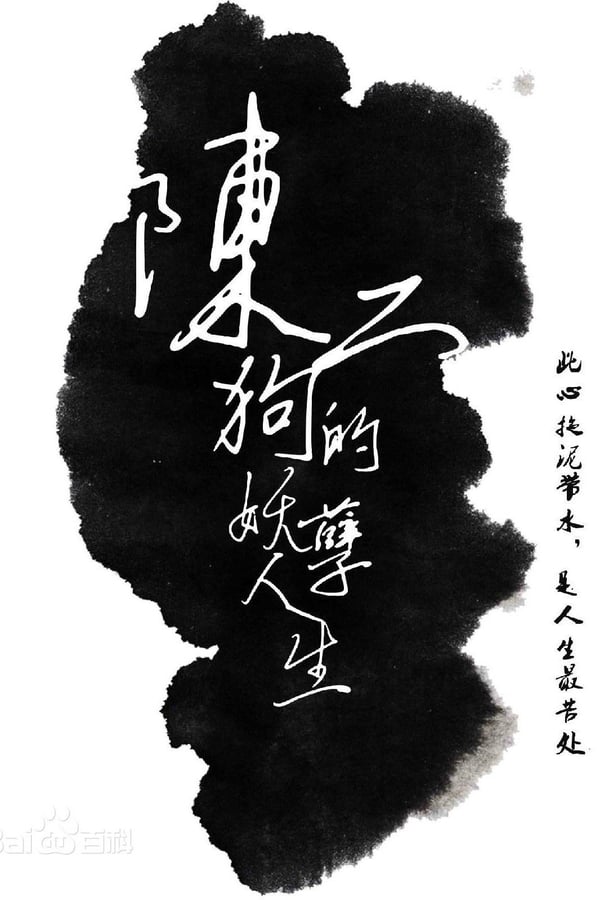 陳二狗的妖孽人生
此心拖泥带水，是人生最苦处
Bai百科